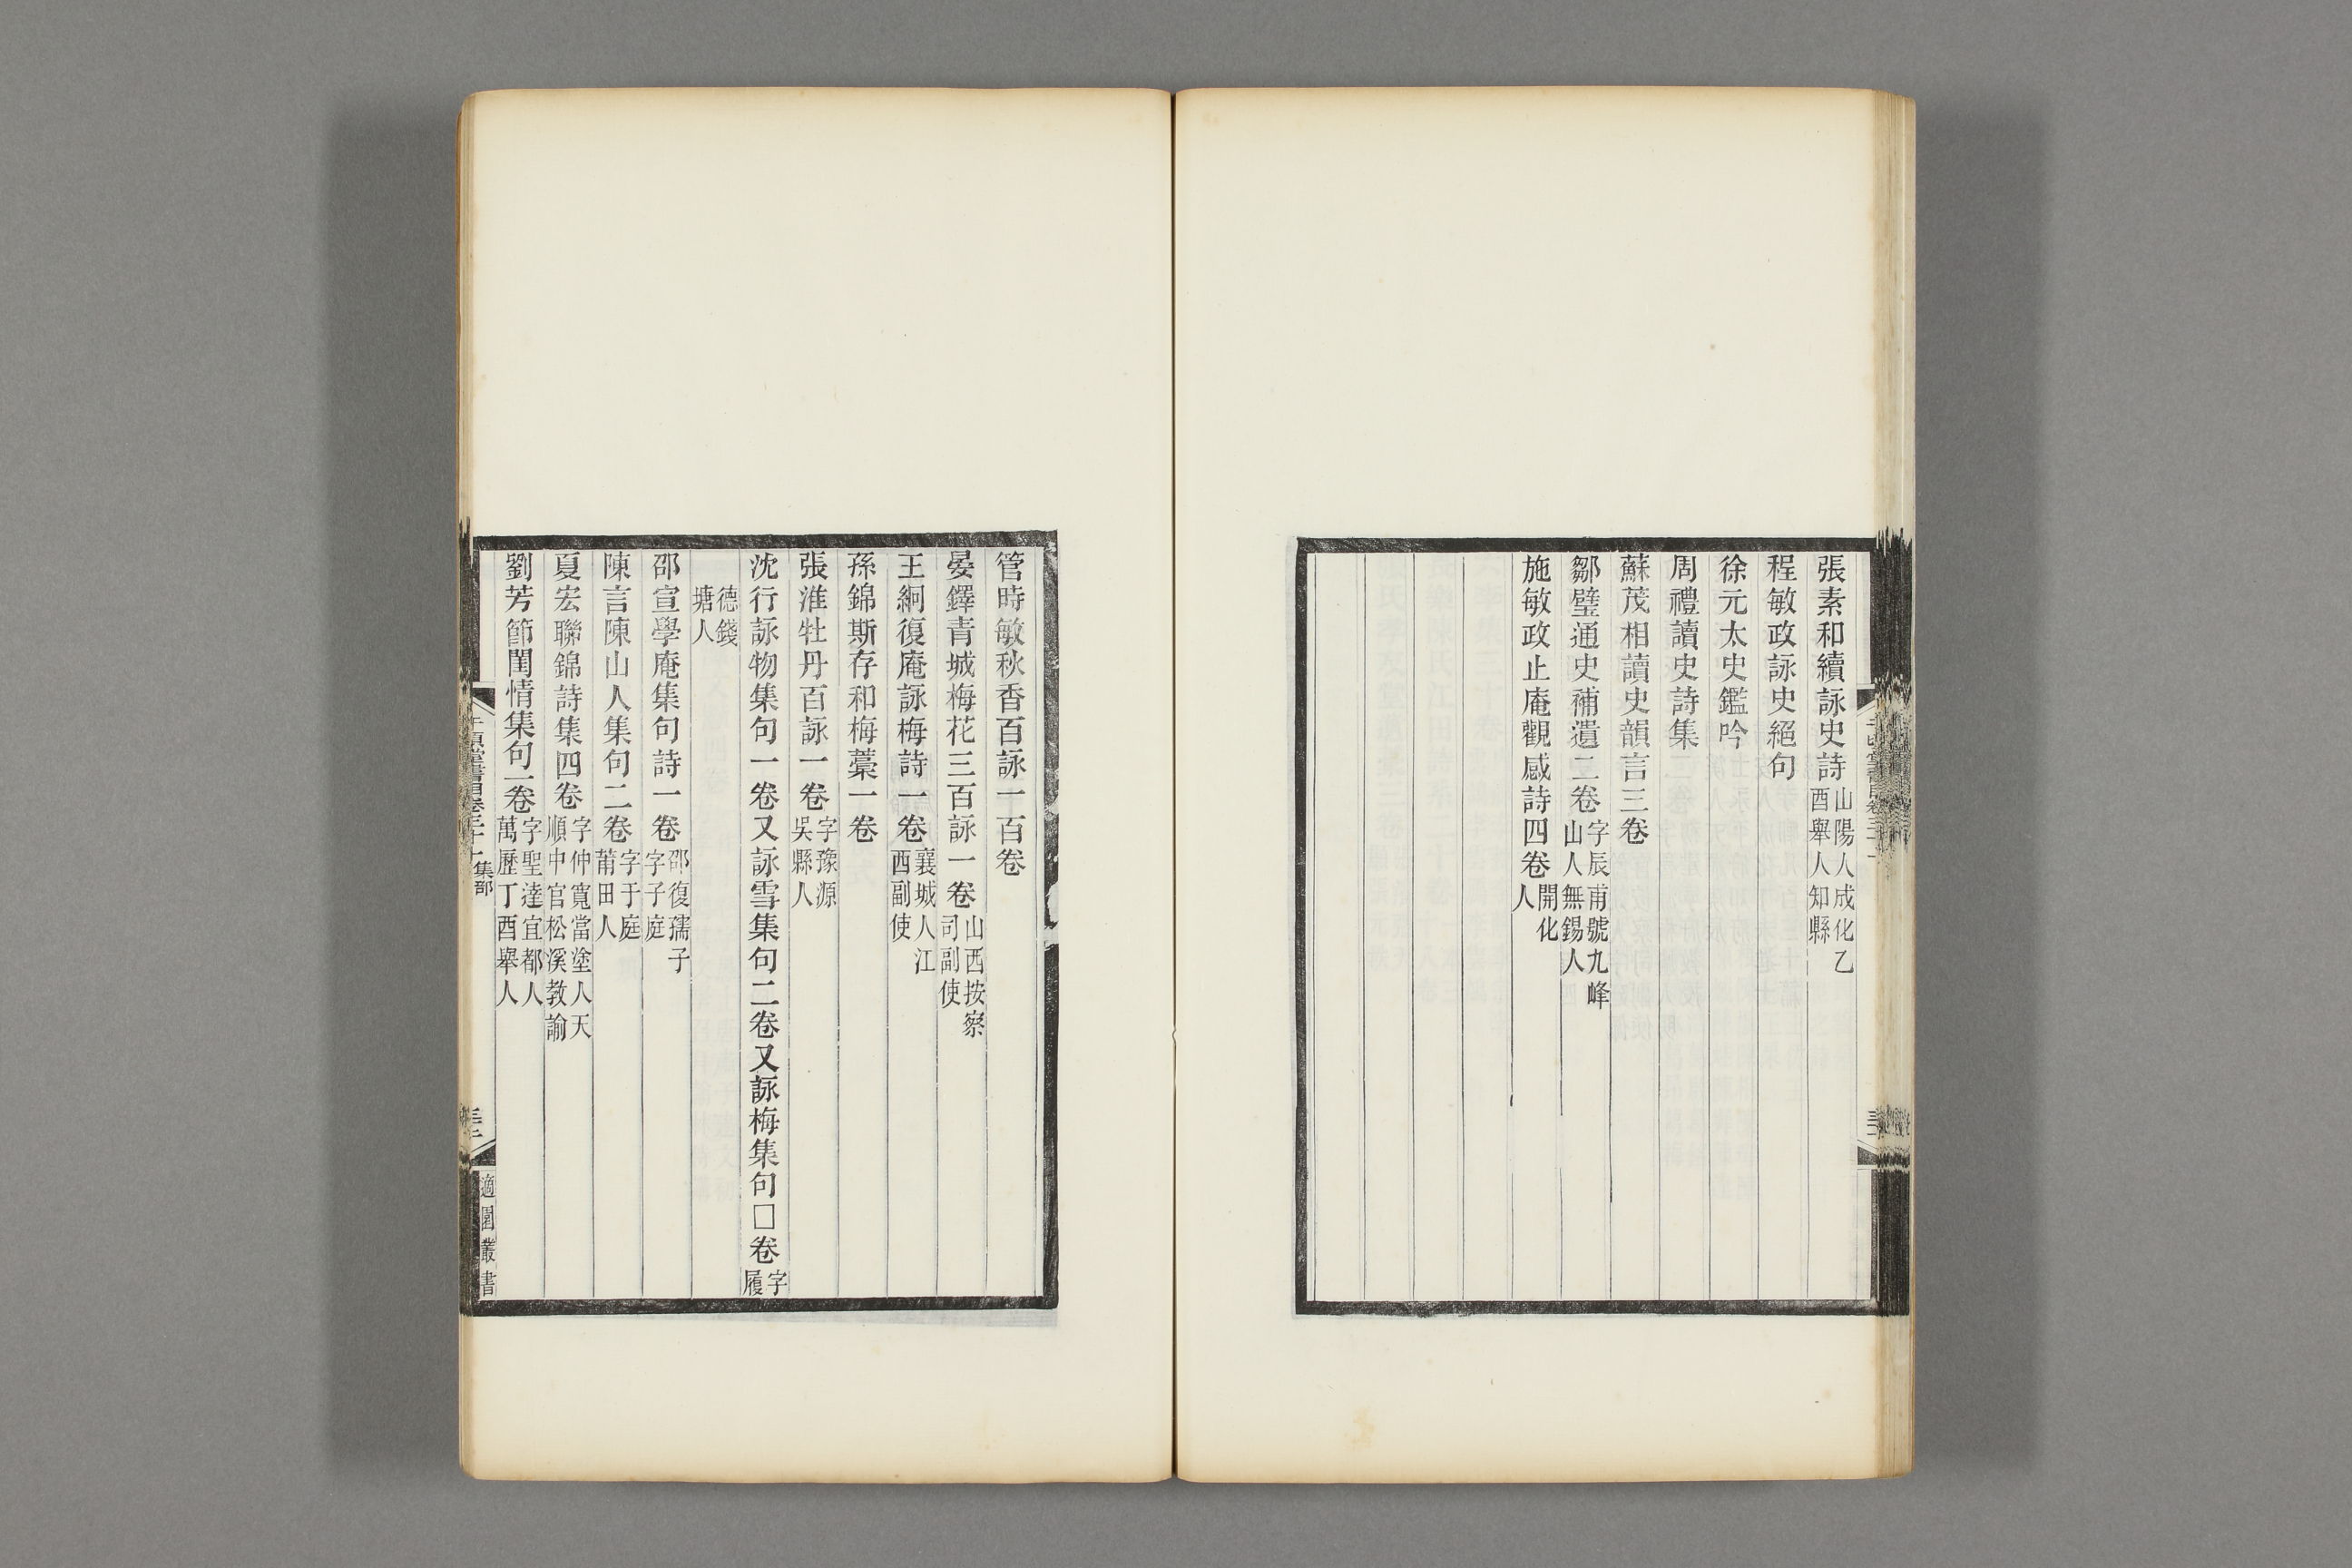 張素和續詠史詩山陽人成化乙酉舉人知縣
程敏政詠史絕句
徐元太史鑑吟
周禮讀史詩集
蘇茂相讀史韻言三卷
鄒璧通史補遺二卷字辰甫號九峰山人無錫人
施敏政止庵觀感詩四卷開化人
管時敏秋香百詠一百卷
晏鐸青城梅花三百詠一卷山西按察司副使
王絅復庵詠梅詩一卷襄城人江西副使
孫錦斯存和梅藁一卷
張淮牡丹百詠一卷字豫源吳縣人
沈行詠物集句一卷又詠雪集句二卷又詠梅集句□卷字履
德錢塘人
邵宣學庵集句詩一卷邵復孺子字子庭
陳言陳山人集句二卷字于庭莆田人
夏宏聯錦詩集四卷字仲寬當塗人天順中官松溪教諭
劉芳節閨情集句一卷字聖達宜都人萬歷丁酉舉人
千頃堂書目卷三十一 集部
適園叢書